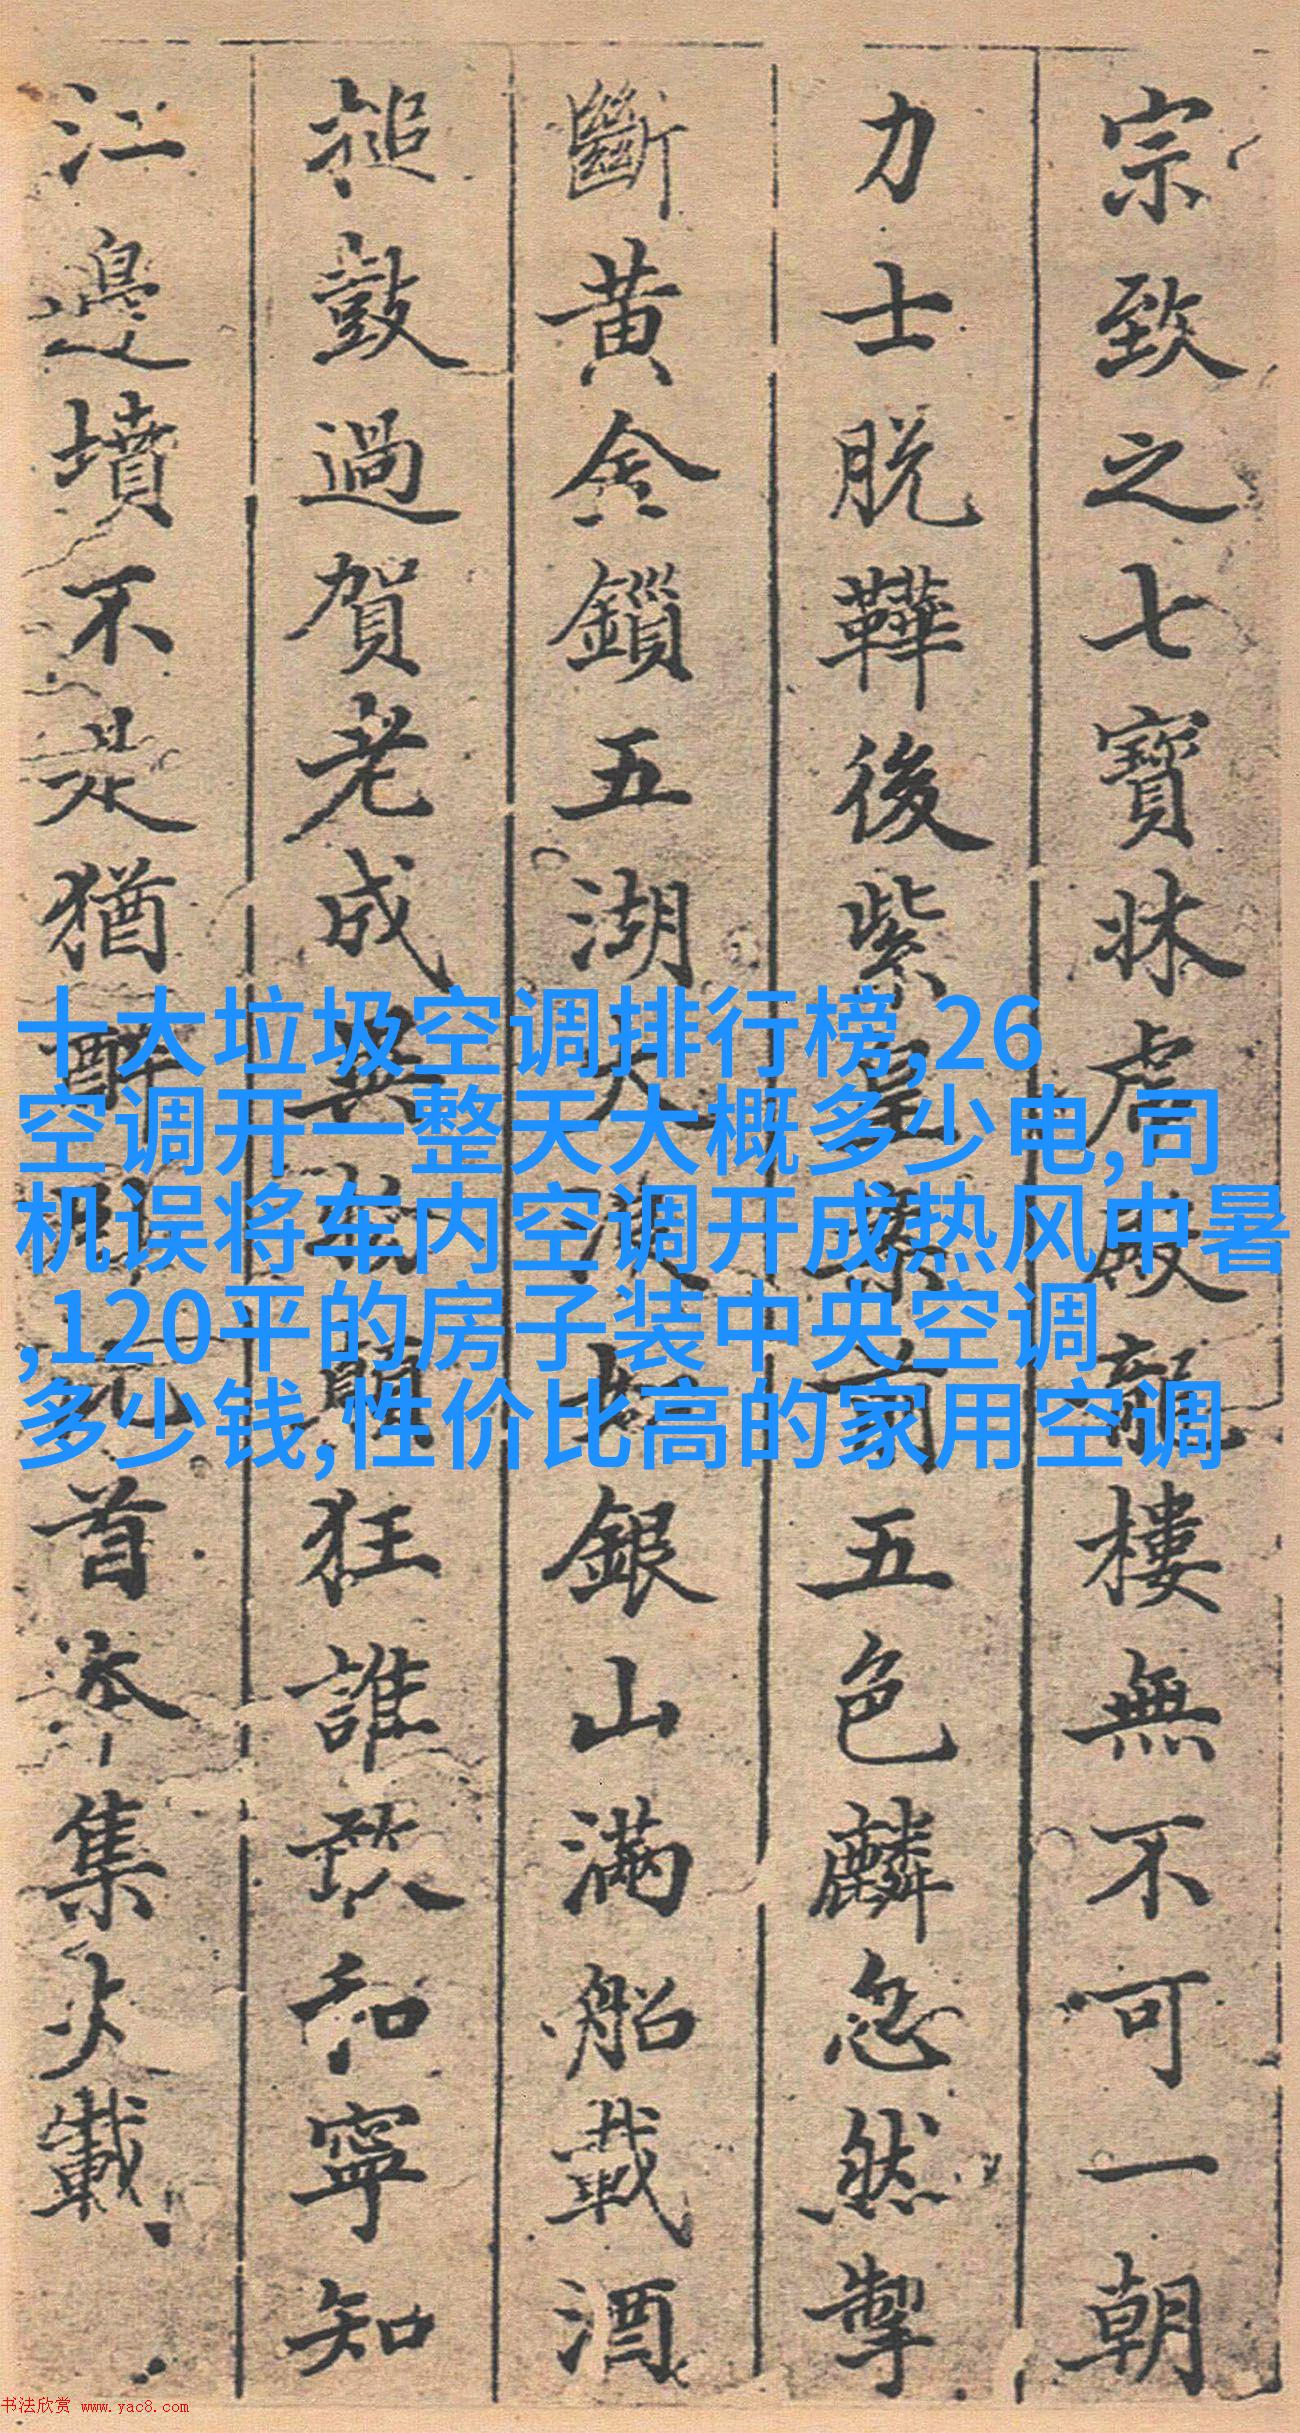 宗致之七寶牀虎殿龍樓無不可一朝
力士脱鞾後紫皇案前五色麟忽然掣
斷黄金鎖五湖大浪如銀山滿船載酒
搥鼓過賀老成異物顛狂誰敢和寧知
江邊墳不是猶醉眠首本集載
十大垃圾空调排行榜,26
空调开一整天大概多少电,司
机误将车内空调开成热风中暑
,120平的房子装中央空调
多少钱,性价比高的家用空调
书法欣赏 www.yac8.com